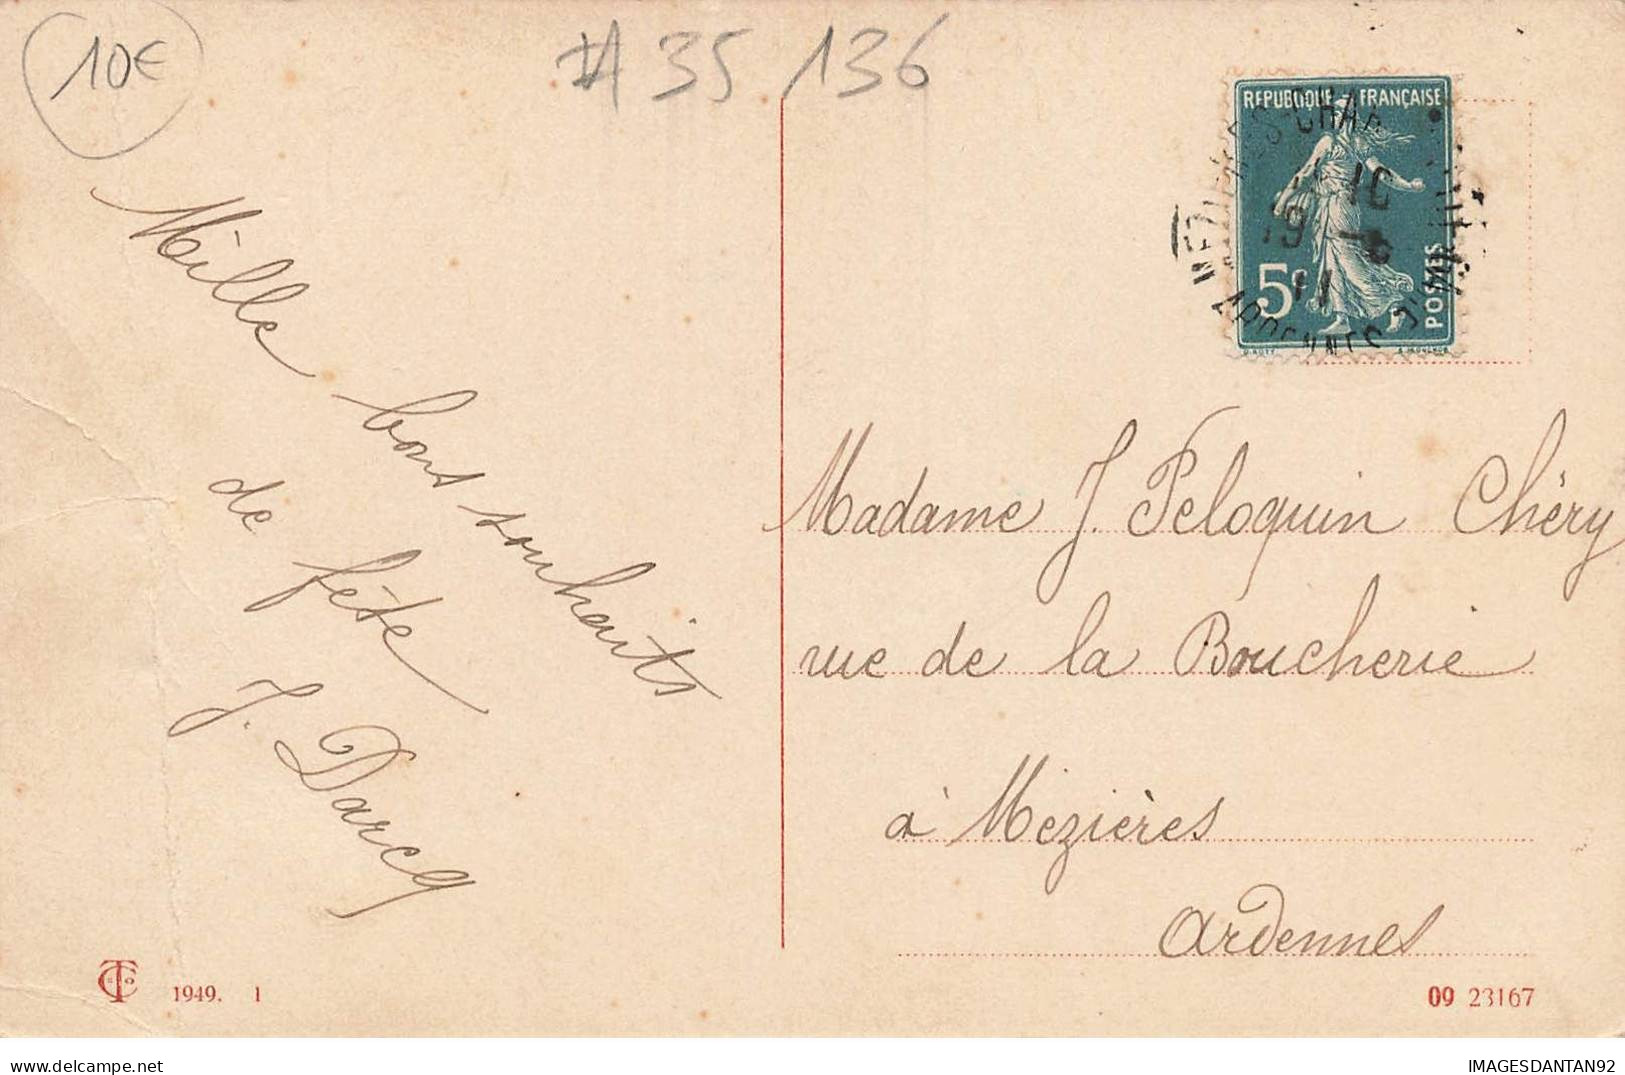 10€
#A 35 136
REPUBLIQUE FRANÇAISE
5c
POSTES
ARDENNES
19 - 8
11
Mille bons souhaits
de fête
J. Darcq
Madame J. Peloquin Chéry
rue de la Boucherie
à Mézières
Ardennes
1949. 1
09 23167
IMAGESDANTAN92